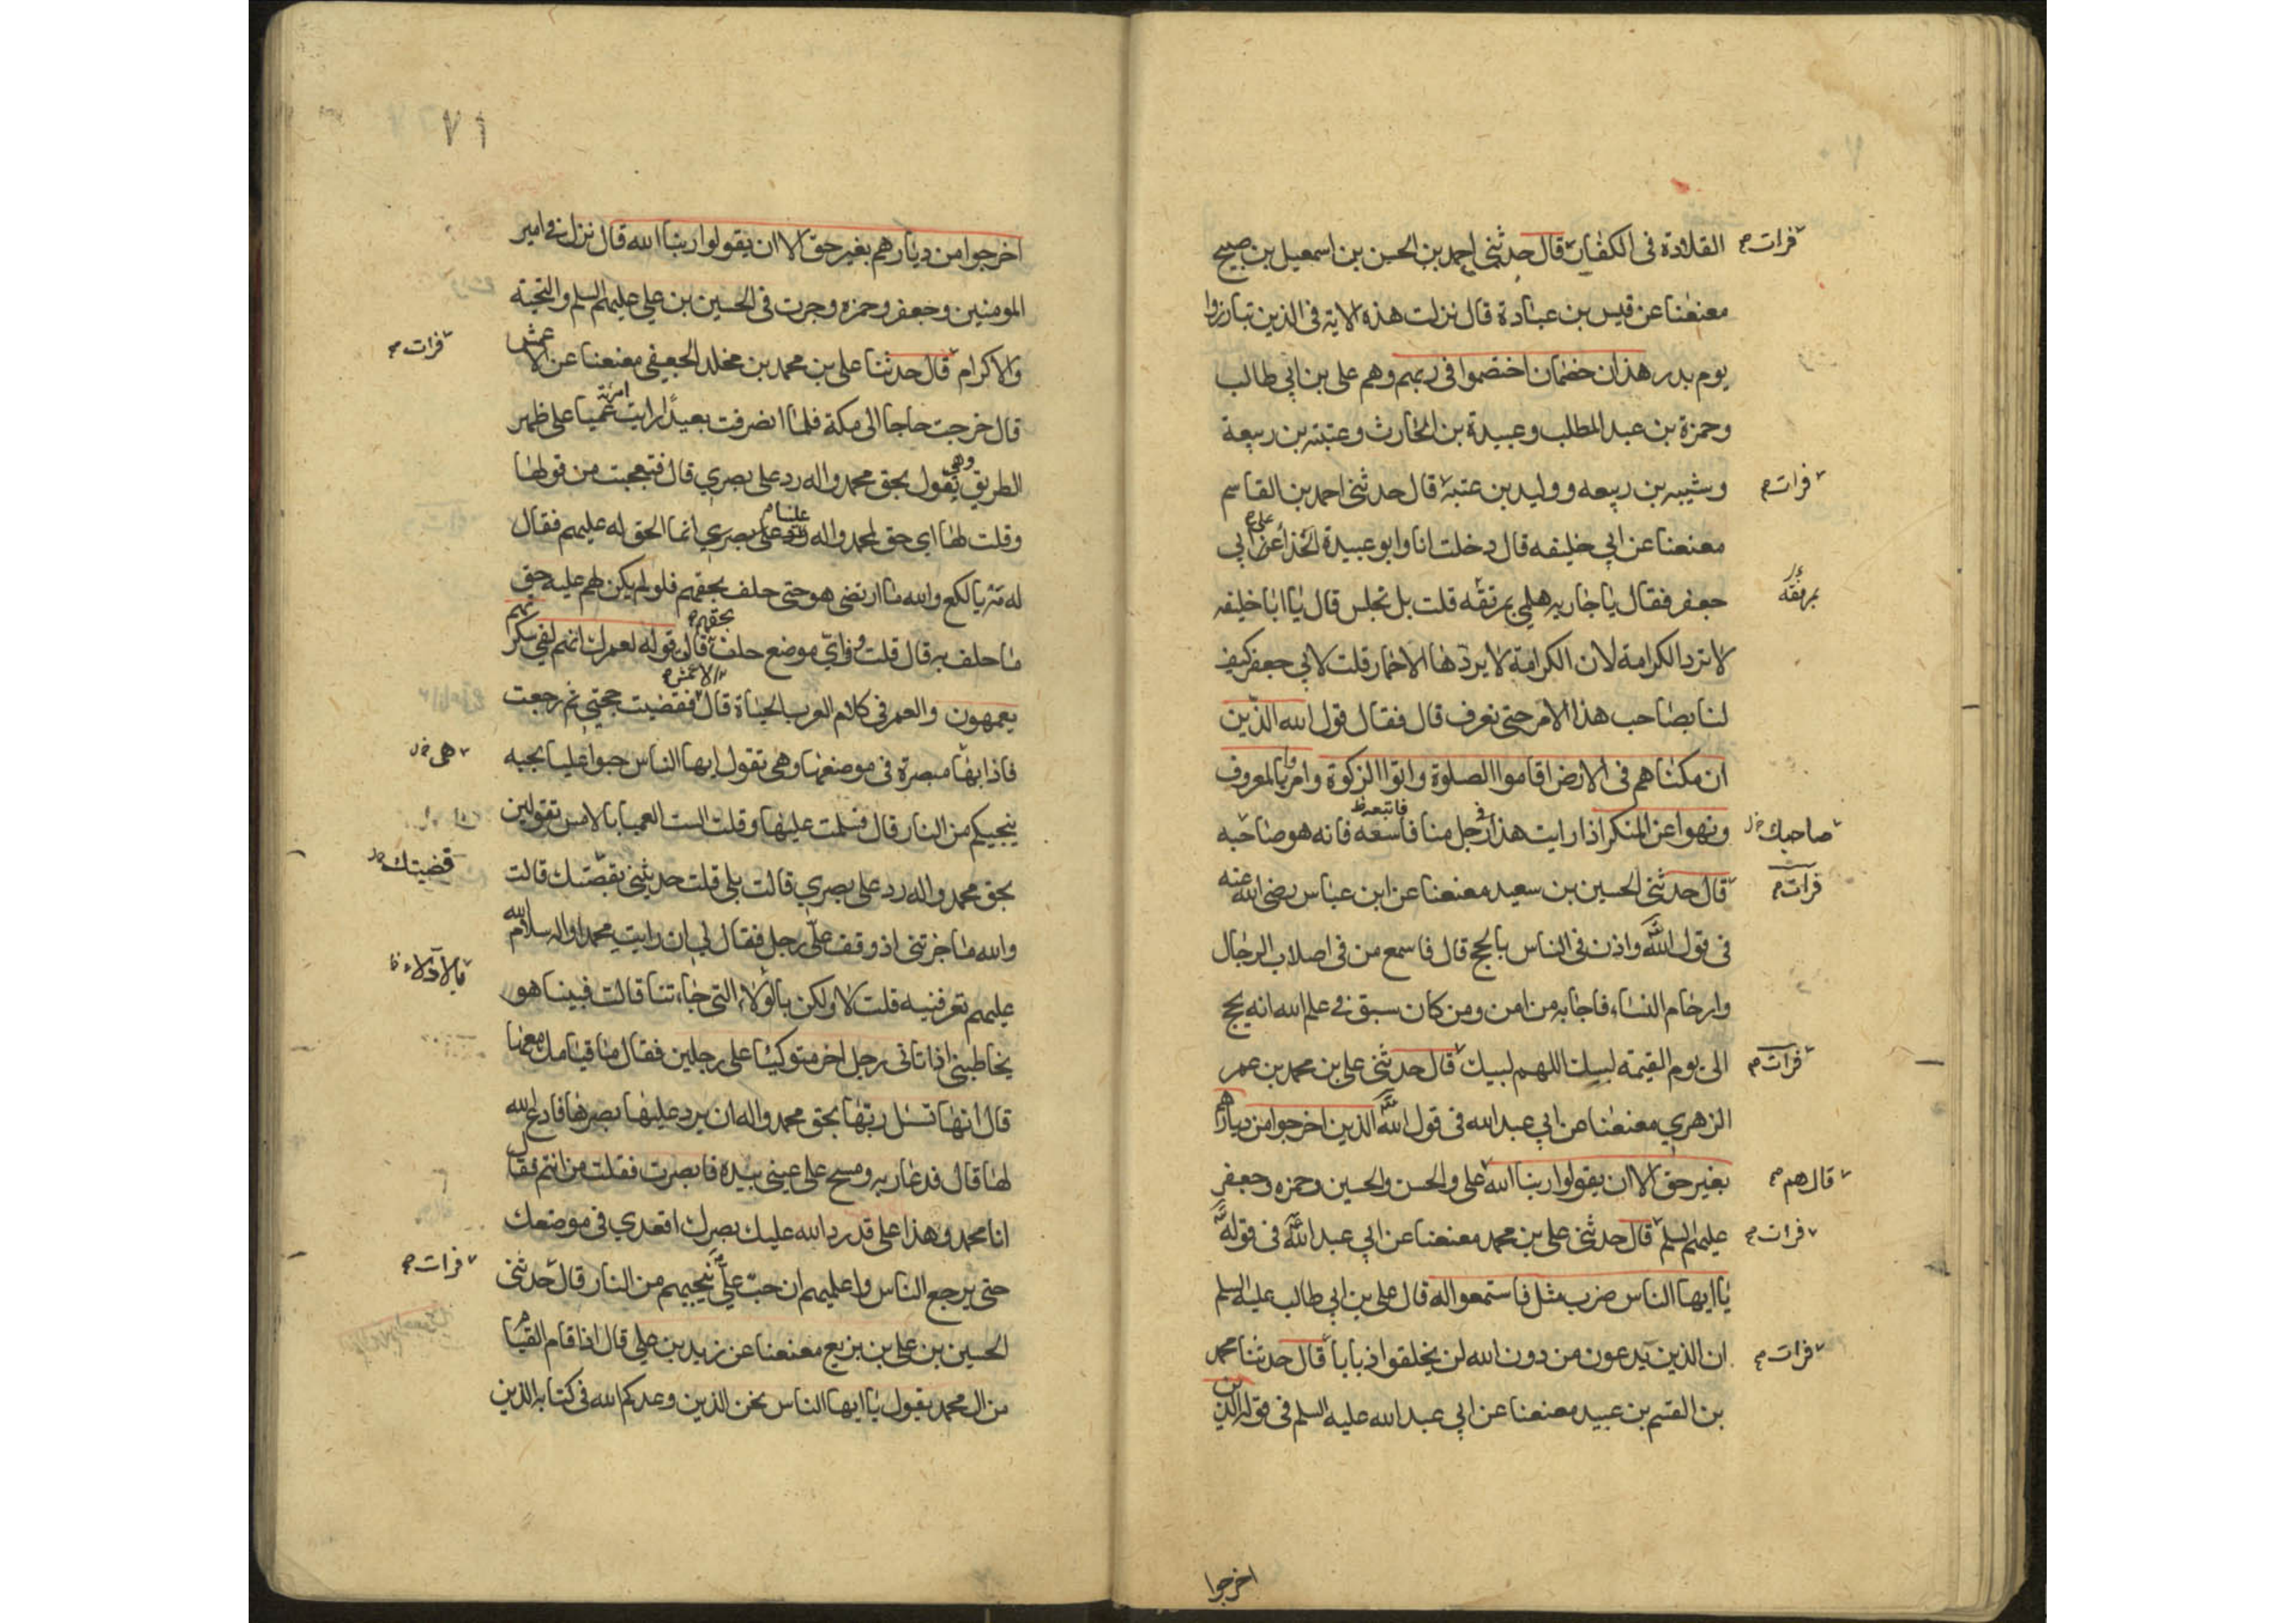 القلادة في الكفار قال حدثني احمد بن الحسن بن اسمعيل بن صبيح
فرات
معنعنا عن قيس بن عبادة قال نزلت هذه الاية في الذين تبارزوا
يوم بدر هذان خصمان اختصموا في ربهم وهم علي بن ابي طالب
وحمزة بن عبد المطلب وعبيدة بن الحارث وعتبة بن ربيعة
وشيبه بن ربيعه ووليد بن عتبة قال حدثني احمد بن القاسم
فرات
معنعنا عن ابي خليفه قال دخلت انا وابو عبيدة الحذاء على ابي
جعفر فقال يا جاريه هلمي بمرفقه قلت بل نجلس قال يا ابا خليفه
بمرفقه
لا ترد الكرامة لان الكرامة لا يردها الا حمار قلت لابي جعفر كيف
لنا بصاحب هذا الامر حتى نعرف قال فقال قول الله الذين
ان مكناهم في الارض اقاموا الصلوة واتوا الزكوة وامروا بالمعروف
ونهوا عن المنكر اذا رايت هذا في رجل منا فاتبعه فانه هو صاحبه
صاحبك
قال حدثني الحسين بن سعيد معنعنا عن ابن عباس رضي الله عنه
فرات
في قول الله واذن في الناس بالحج قال فاسمع من في اصلاب الرجال
وارحام النساء فاجابه من امن ومن كان سبق في علم الله انه يحج
الى يوم القيمة لبيك اللهم لبيك قال حدثني علي بن محمد بن عمر
فرات
الزهري معنعنا عن ابي عبد الله في قول الله الذين اخرجوا من ديارهم
بغير حق الا ان يقولوا ربنا الله علي والحسن والحسين وحمزه وجعفر
قال هم
عليهم السلم قال حدثني علي بن محمد معنعنا عن ابي عبد الله في قوله
فرات
يا ايها الناس ضرب مثل فاستمعوا له قال علي بن ابي طالب عليه السلم
ان الذين يدعون من دون الله لن يخلقوا ذبابا قال حدثنا محمد
فرات
بن القسم بن عبيد معنعنا عن ابي عبد الله عليه السلم في قوله الذين
اخرجوا
٧١
اخرجوا من ديارهم بغير حق الا ان يقولوا ربنا الله قال نزل في امير
المومنين وجعفر وحمزه وجرت في الحسين بن علي عليهم السلم والتحية
والاكرام قال حدثنا علي بن محمد بن مخلد الجعفي معنعنا عن الاعمش
فرات
قال خرجت حاجا الى مكة فلما انصرفت بعيدا رايت امرئة عميا على ظهر
الطريق وهي تقول بحق محمد واله رد علي بصري قال فتعجبت من قولها
وقلت لها اي حق لمحمد واله عليه انما الحق له عليهم فقال
له مه يا لكع والله ما ارتضى هو حتى حلف بحقهم فلو لم يكن لهم عليه حق
ما حلف به قال قلت وفي اي موضع حلف بحقهم قال قوله لعمرك انهم لفي سكرتهم
يعمهون والعمر في كلام العرب الحياة قال الاعمش فقضيت حجتي ثم رجعت
فاذا بها مبصرة في موضعها وهي تقول ايها الناس حبوا عليا بحبه
هي
ينجيكم من النار قال فسلمت عليها وقلت الست العميا بالامس تقولين
بحق محمد واله رد علي بصري قالت بلى قلت حدثيني بقصتك قالت
قضيتك
والله ما جزتني اذ وقف علي رجل فقال لي ان رايت محمدا واله سلام الله
عليهم تعرفنيه قلت لا ولكن بالولاء التي جاءتنا قالت فبينا هو
يخاطبني اذ اتاني رجل اخر متوكيا على رجلين فقال ما قيامك معها
قال انها تسئل ربها بحق محمد واله ان يرد عليها بصرها فادع الله
لها قال فدعا ربه ومسح على عيني بيده فابصرت فقلت من انتم فقال
انا محمد وهذا علي قد رد الله عليك بصرك اقعدي في موضعك
حتى يرجع الناس واعلميهم ان حب علي ينجيهم من النار قال حدثني
فرات
الحسين بن علي بن بزيع معنعنا عن زيد بن علي قال اذا قام القيام
من ال محمد يقول يا ايها الناس نحن الذين وعدكم الله في كتابه الذين